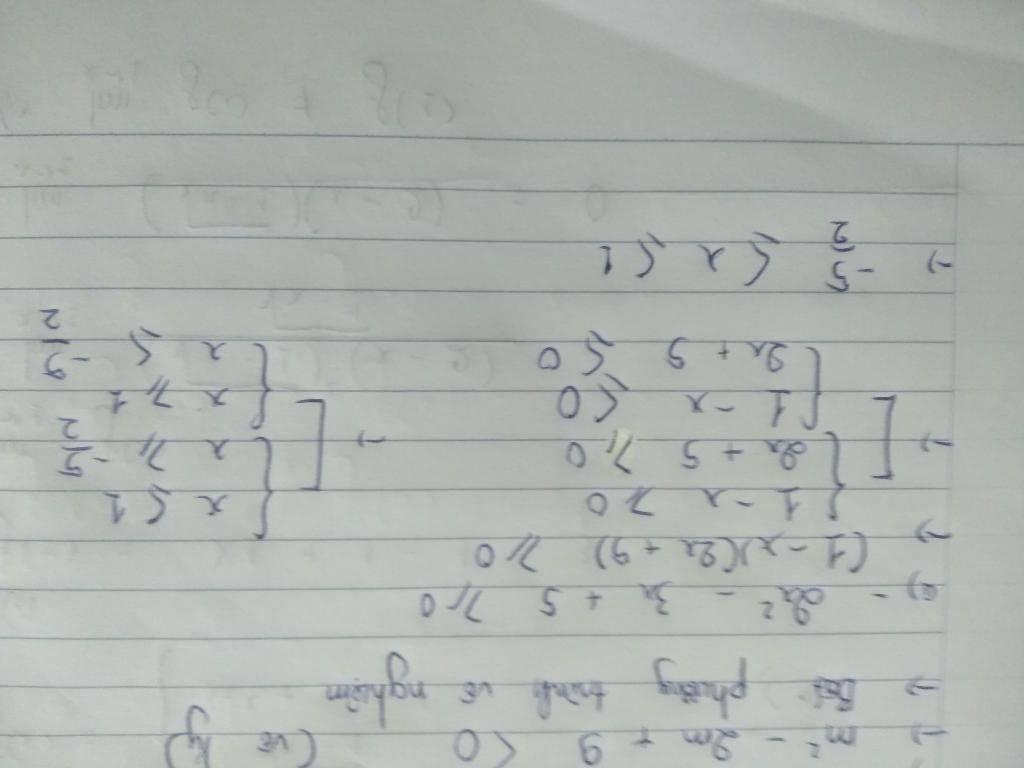 → m² - 2m + 9 < 0 (vô lý)
→ Bất phương trình vô nghiệm
c) -2x² - 3x + 5 ≥ 0
→ (1 - x)(2x + 5) ≥ 0
→ [ { 1 - x ≥ 0 → [ { x ≤ 1
2x + 5 ≥ 0 x ≥ -5/2
{ 1 - x ≤ 0 { x ≥ 1
2x + 5 ≤ 0 x ≤ -5/2
→ -5/2 ≤ x ≤ 1